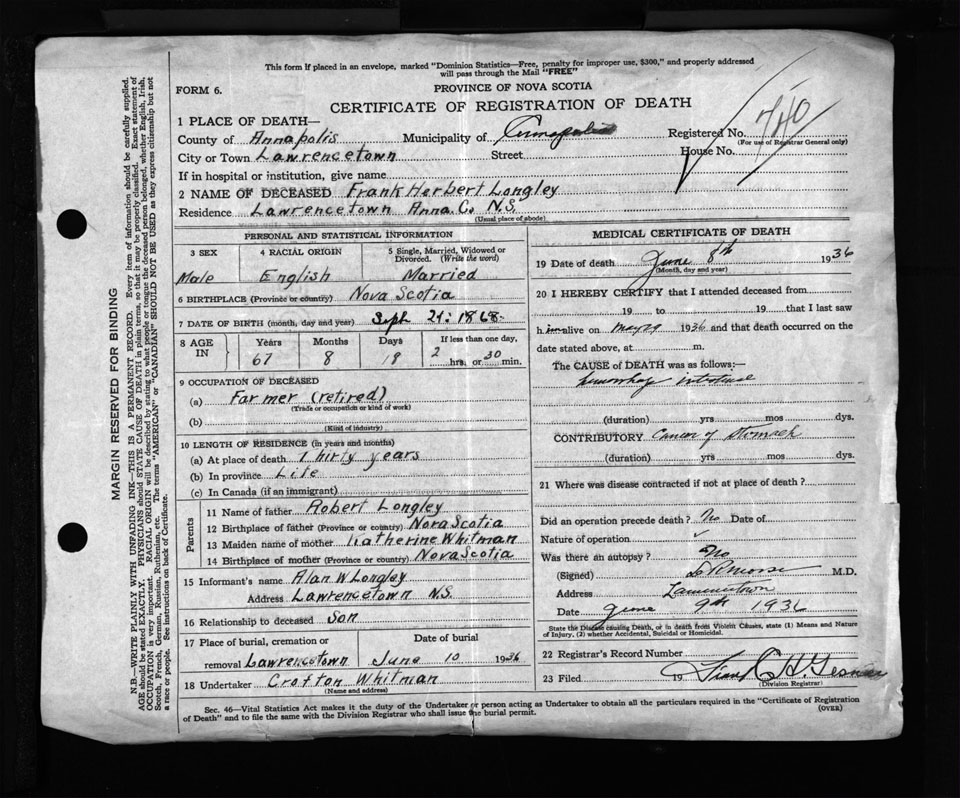 This form if placed in an envelope, marked "Dominion Statistics—Free, penalty for improper use, $300," and properly addressed
will pass through the Mail "FREE"
FORM 6.
PROVINCE OF NOVA SCOTIA
CERTIFICATE OF REGISTRATION OF DEATH
740
1 PLACE OF DEATH—
County of Annapolis Municipality of Annapolis Registered No.
(For use of Registrar General only)
City or Town Lawrencetown Street House No.
If in hospital or institution, give name
2 NAME OF DECEASED Frank Herbert Longley
Residence Lawrencetown Anna. Co. N.S.
(Usual place of abode)
PERSONAL AND STATISTICAL INFORMATION
3 SEX 4 RACIAL ORIGIN 5 Single, Married, Widowed or Divorced. (Write the word)
Male English Married
6 BIRTHPLACE (Province or country) Nova Scotia
7 DATE OF BIRTH (month, day and year) Sept 21: 1868
8 AGE IN Years Months Days If less than one day,
67 8 18 2 hrs. or 30 min.
9 OCCUPATION OF DECEASED
(a) Farmer (retired)
(Trade or occupation or kind of work)
(b)
(Kind of industry)
10 LENGTH OF RESIDENCE (in years and months)
(a) At place of death Thirty years
(b) In province Life
(c) In Canada (if an immigrant)
Parents
11 Name of father Robert Longley
12 Birthplace of father (Province or country) Nova Scotia
13 Maiden name of mother Katherine Whitman
14 Birthplace of mother (Province or country) Nova Scotia
15 Informant's name Alan W Longley
Address Lawrencetown N.S.
16 Relationship to deceased Son
17 Place of burial, cremation or Date of burial
removal Lawrencetown June 10 1936
18 Undertaker Crofton Whitman
(Name and address)
MEDICAL CERTIFICATE OF DEATH
19 Date of death June 8th 1936
(Month, day and year)
20 I HEREBY CERTIFY that I attended deceased from
19 to 19 that I last saw
h im alive on May 29 1936 and that death occurred on the
date stated above, at m.
The CAUSE of DEATH was as follows:—
hemorrhag intestinal
(duration) yrs mos dys.
CONTRIBUTORY Cancer of stomach
(duration) yrs mos dys.
21 Where was disease contracted if not at place of death?
Did an operation precede death? No Date of
Nature of operation
Was there an autopsy? No
(Signed) Morse M.D.
Address Lawrencetown
Date June 9th 1936
State the Disease causing Death, or in death from Violent Causes, state (1) Means and Nature
of Injury, (2) whether Accidental, Suicidal or Homicidal.
22 Registrar's Record Number
23 Filed 19
(Division Registrar)
Sec. 46—Vital Statistics Act makes it the duty of the Undertaker or person acting as Undertaker to obtain all the particulars required in the "Certificate of Registration
of Death" and to file the same with the Division Registrar who shall issue the burial permit. (OVER)
MARGIN RESERVED FOR BINDING
N.B.—WRITE PLAINLY WITH UNFADING INK—THIS IS A PERMANENT RECORD. Every item of information should be carefully supplied.
AGE should be stated EXACTLY. PHYSICIANS should STATE CAUSE OF DEATH in plain terms, so that it may be properly classified. Exact statement of
OCCUPATION is very important. RACIAL ORIGIN will be described by stating to what people or tongue the deceased person belonged, whether English, Irish,
Scotch, French, German, Russian, Ruthenian, etc. The terms "AMERICAN" or "CANADIAN" SHOULD NOT BE USED as they express citizenship but not
a race or people. See instructions on back of Certificate.